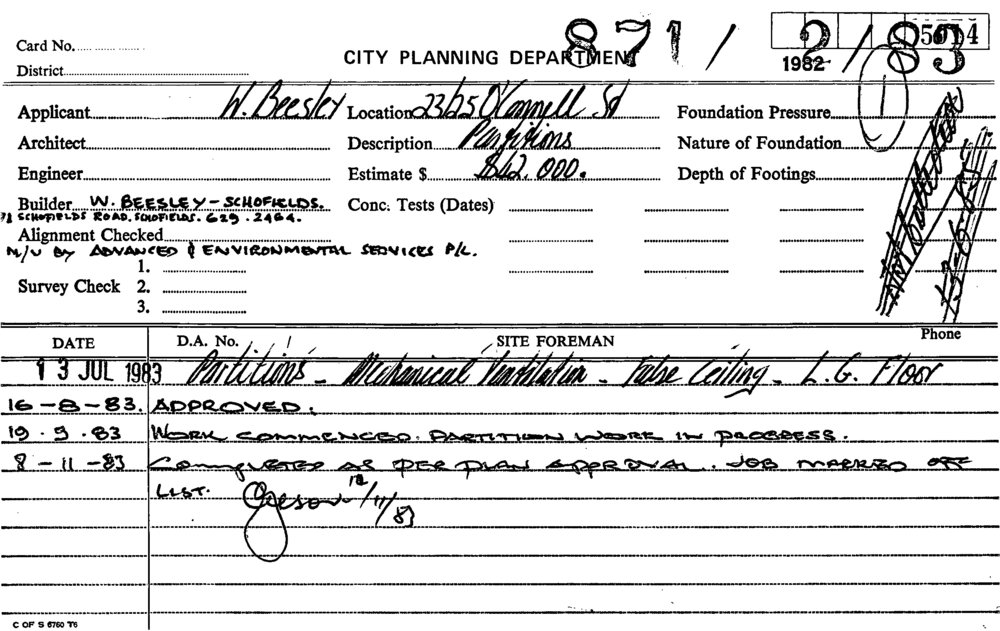 Card No.
5014
871/2/83
CITY PLANNING DEPARTMENT
1982
District
1
Applicant W. Beesley Location 23/25 O'Connell St Foundation Pressure
Architect Description Partitions Nature of Foundation
Engineer Estimate $ $42,000. Depth of Footings
Builder W. BEESLEY - SCHOFIELDS. Conc. Tests (Dates)
SCHOFIELDS ROAD, SCHOFIELDS. 629.2464.
Alignment Checked
M/V BY ADVANCED & ENVIRONMENTAL SERVICES P/L.
1.
Survey Check 2.
3.
DATE D.A. No. SITE FOREMAN Phone
13 JUL 1983 Partitions - Mechanical Ventilation - False Ceiling - L.G. Floor
16-8-83. APPROVED.
19.9.83 WORK COMMENCED. PARTITION WORK IN PROGRESS.
8-11-83 COMPLETED AS PER PLAN APPROVAL. JOB MARKED OFF
LIST. 12/11/83
C OF S 6760 T6